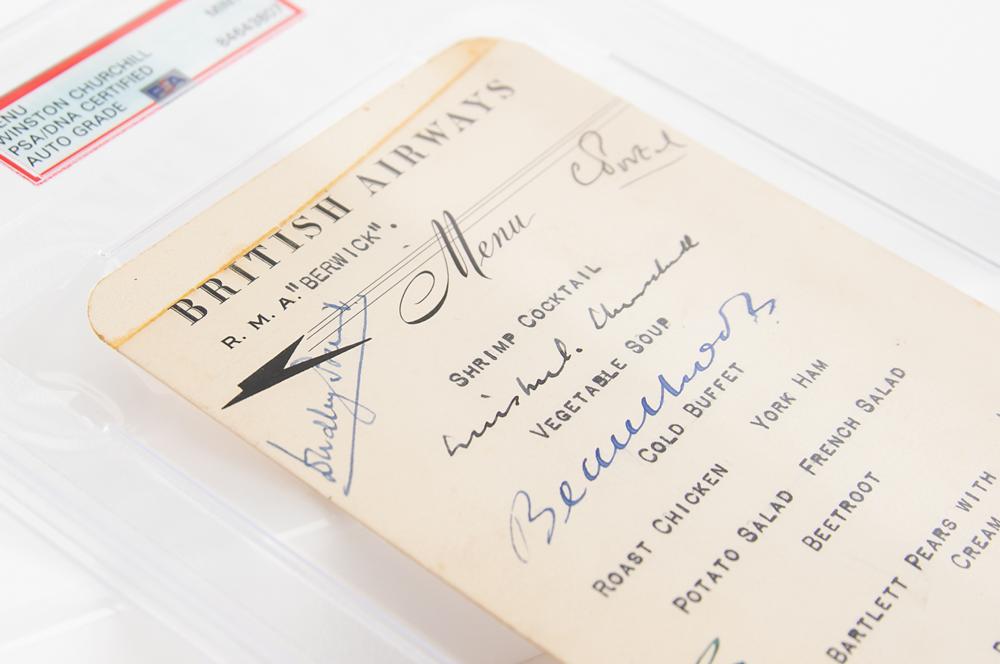 MINT
84643807
ENU
WINSTON CHURCHILL
PSA/DNA CERTIFIED
AUTO GRADE
PSA
BRITISH AIRWAYS
R. M. A. "BERWICK".
Menu
C Portal
Dudley Pound
SHRIMP COCKTAIL
Winston S. Churchill
VEGETABLE SOUP
Beaverbrook
COLD BUFFET
ROAST CHICKEN YORK HAM
POTATO SALAD FRENCH SALAD
BEETROOT
BARTLETT PEARS WITH
CREAM